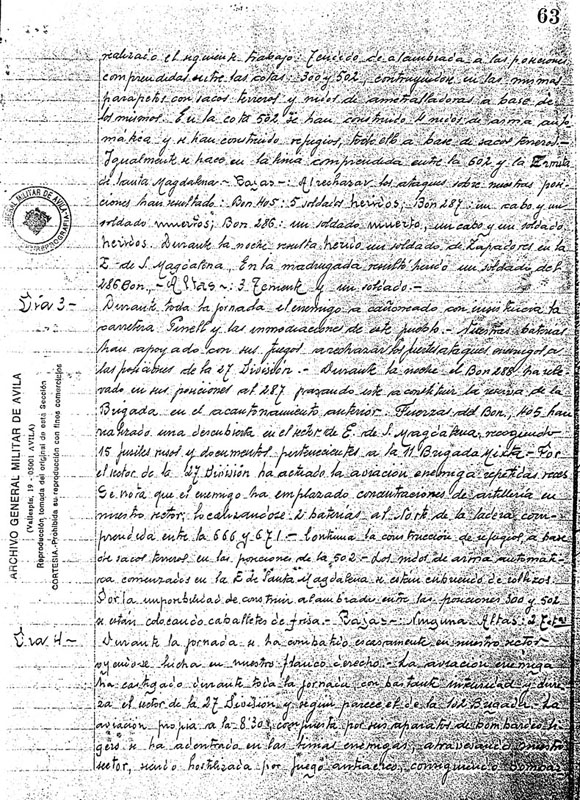 63
realizado el siguiente trabajo: Tendido de alambrada a las posiciones
comprendidas entre las cotas: 300 y 502, contruyendose en las mismas
parapetos con sacos terreros y nidos de ametralladoras a base de
los mismos. En la cota 502 se han construido 4 nidos de arma auto
mática y se han construido refugios, todo ello a base de sacos terreros.-
Igualmente se hace en la linea comprendida entre la 502 y la Ermita
de Santa Magdalena - Bajas-: Al rechazar los ataques sobre nuestras posi-
ciones han resultado: Bon 405: 5 soldados heridos; Bon 287: un cabo y un
soldado muertos; Bon. 286: un soldado muerto, un cabo y un soldado
heridos. Durante la noche resulta herido un soldado de Zapadores en la
E. de S. Magdalena. En la madrugada resultó herido un soldado del
286 Bon.- Altas-: 3. Teniente y un soldado.-
Dia 3-
Durante toda la jornada el enemigo a cañoneado con insistencia la
carretera Pinell y las inmediaciones de este pueblo.- Nuestras baterias
han apoyado con sus fuegos a rechazar los fuertes ataques enemigos a
las posiciones de la 27 División.- Durante la noche el Bon 288 ha rele
vado en sus posiciones al 287 pasando este a constituir la reserva de la
Brigada en el acantonamiento anterior.- Fuerzas del Bon, 405 han
realizado una descubierta en el sector de E. de S. Magdalena, recogiendo
15 fusiles rusos y documentos pertenecientes a la 11 Brigada Mixta.- Por
el sector de la 27 División ha actuado la aviación enemiga repetidas veces
Se nota que el enemigo ha emplazado concentraciones de artilleria en
nuestro sector, localizandose 2 baterias al Norte de la ladera com-
prendida entre la 666 y 671.- Continua la construcción de refugios a base
de sacos terreros en las posiciones de la 502 - Los nidos de arma automáti-
ca comenzados en la E. de Santa Magdalena se están cubriendo de rollizos
Por la imposibilidad de construir alambrada entre las posiciones 300 y 502
se están colocando caballetes de frisa.- Bajas-: Ninguna. Altas: 2
Dia 4-
Durante la jornada se ha combatido escasamente en nuestro sector
oyendose lucha en nuestro flanco derecho.- La aviación enemiga
ha castigado durante toda la jornada con bastante intensidad y dure
za el sector de la 27 División y según parece el de la 101 Brigada. La
aviación propia a la 8'30 h. compuesta por seis aparatos de bombardeo li
gero se ha adentrado en las lineas enemigas, atravesando nuestro
sector, siendo hostilizada por fuego antiaereo, consiguiendo bombar
ARCHIVO GENERAL MILITAR DE AVILA
(Vallespin, 19 - 05001 AVILA)
Reproducción tomada del original de esta Sección
CORTESIA.-Prohibida su reproducción con fines comerciales